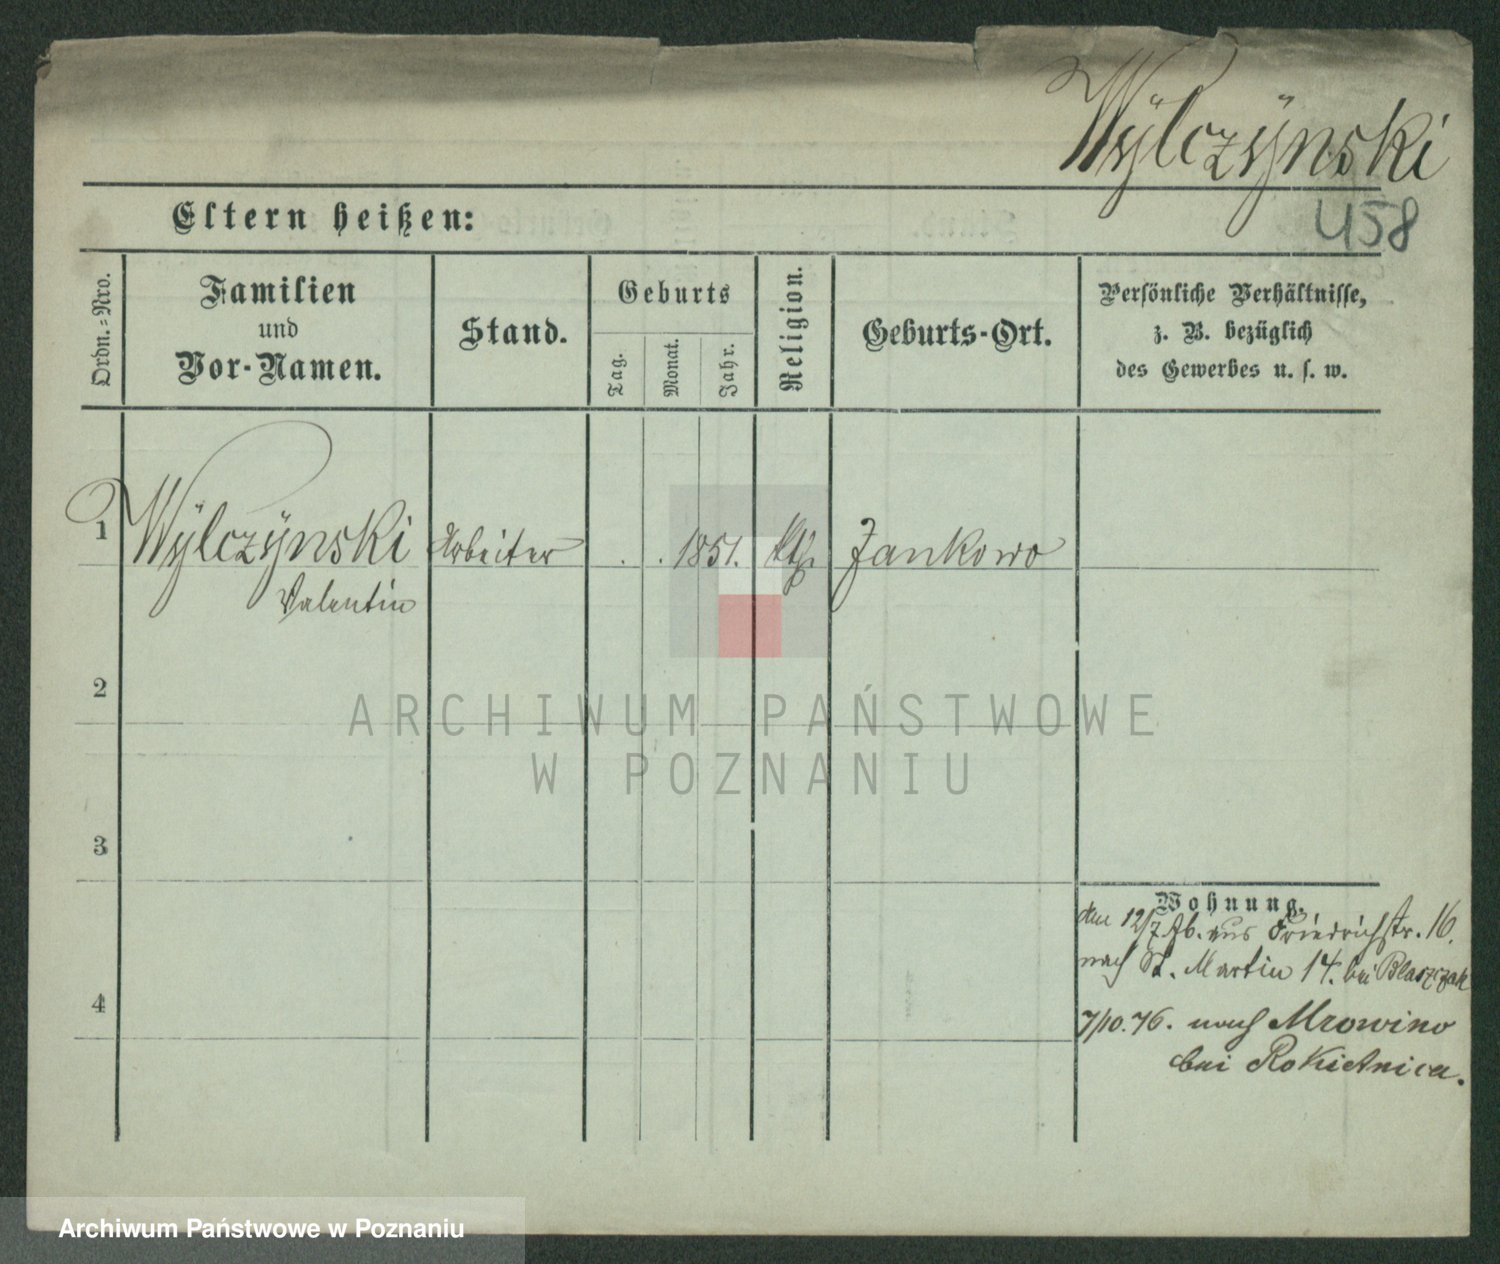 Wÿlczÿnski
458
Eltern heißen:
Ordn.-Nro.
Familien
und
Vor-Namen.
Stand.
Geburts
Tag.
Monat.
Jahr.
Religion.
Geburts-Ort.
Persönliche Verhältnisse,
z. B. bezüglich
des Gewerbes u. s. w.
1 Wÿlczÿnski Arbeiter . . 1851. kth. Jankowo
Valentin
2
ARCHIWUM PAŃSTWOWE
W POZNANIU
3
Wohnung.
den 12/7 76. aus Friedrichstr. 16.
nach St. Martin 14. bei Blaszczak
4
7/10. 76. nach Mrowino
bei Rokietnica.
Archiwum Państwowe w Poznaniu